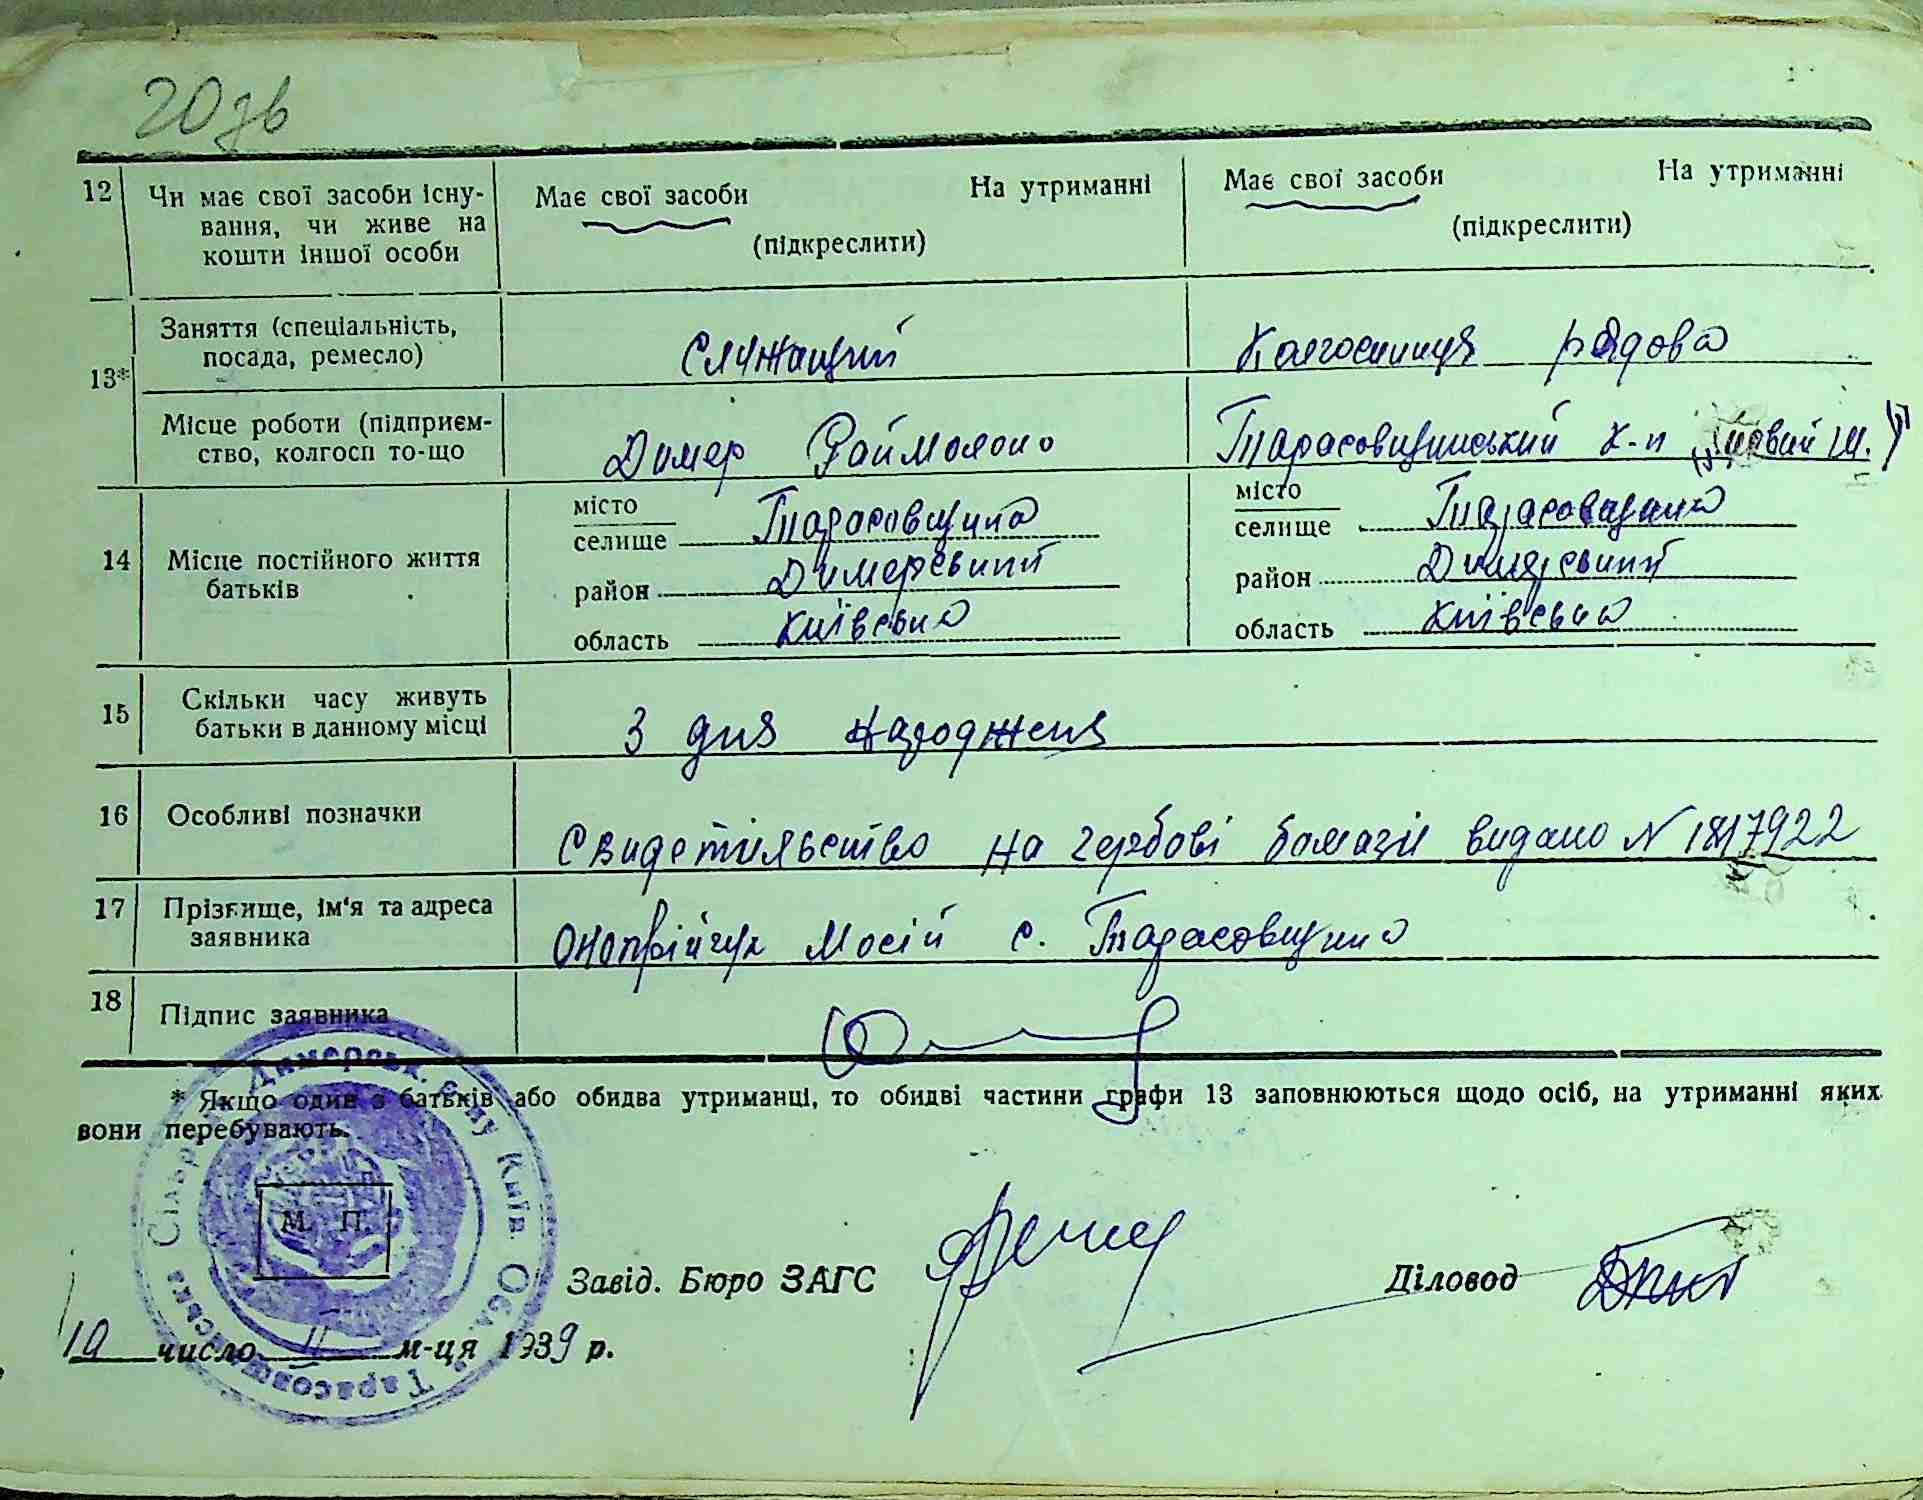 20 зв
12 Чи має свої засоби існу- Має свої засоби На утриманні Має свої засоби На утриманні
вання, чи живе на (підкреслити) (підкреслити)
кошти іншої особи
13* Заняття (спеціальність, Служащий Колгоспниця рядова
посада, ремесло)
Місце роботи (підприєм- Димер Раймолоко Тарасовщинський к-п новий ш.
ство, колгосп то-що
14 Місце постійного життя батьків
місто селище Тарасовщина місто селище Тарасовщина
район Димерський район Димерський
область Київська область Київська
15 Скільки часу живуть З дня народженя
батьки в данному місці
16 Особливі позначки Свидетільство на гербові бомазі видано N 1817922
17 Прізвище, ім'я та адреса Онопрійчук Мосій с. Тарасовщина
заявника
18 Підпис заявника
* Якщо один з батьків або обидва утриманці, то обидві частини графи 13 заповнюються щодо осіб, на утриманні яких
вони перебувають.
Тарасовщинська Сільрада Димерськ. р-ну Київ. Обл.
М. П.
Завід. Бюро ЗАГС Діловод
10 число II м-ця 1939 р.